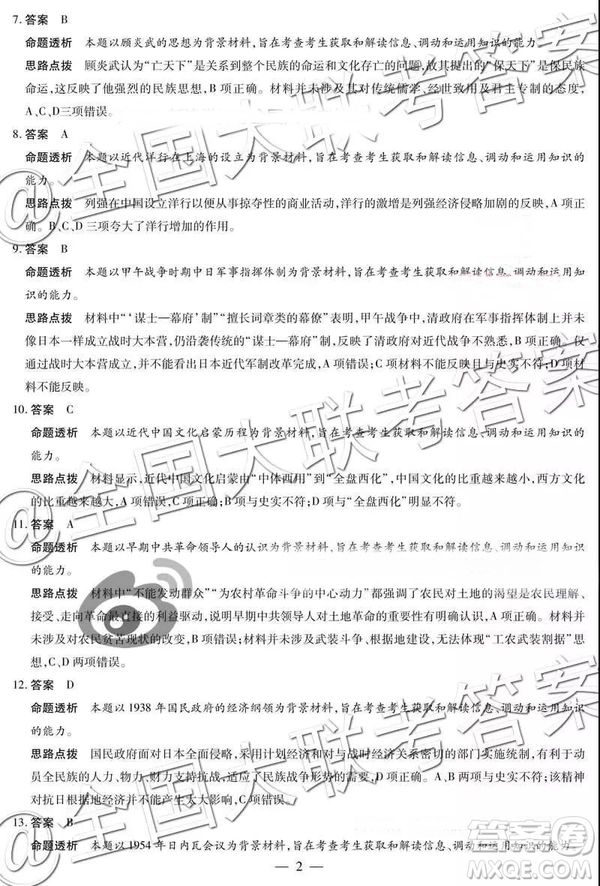 7. 答案 B
命题透析 本题以顾炎武的思想为背景材料,旨在考查考生获取和解读信息、调动和运用知识的能力。
思路点拨 顾炎武认为“亡天下”是关系到整个民族的命运和文化存亡的问题,故其提出的“保天下”是保民族
命运,这反映了他强烈的民族思想,B 项正确。材料并未涉及其对传统儒学、经世致用以及君主专制的态度,
A、C、D三项错误。
8. 答案 A
命题透析 本题以近代洋行在上海的设立为背景材料,旨在考查考生获取和解读信息、调动和运用知识的
能力。
思路点拨 列强在中国设立洋行以便从事掠夺性的商业活动,洋行的激增是列强经济侵略加剧的反映,A 项正
确。B、C、D 三项夸大了洋行增加的作用。
9. 答案 B
命题透析 本题以甲午战争时期中日军事指挥体制为背景材料,旨在考查考生获取和解读信息、调动和运用知
识的能力。
思路点拨 材料中“‘谋士—幕府’制”“擅长词章类的幕僚”表明,甲午战争中,清政府在军事指挥体制上并未
像日本一样成立战时大本营,仍沿袭传统的“谋士—幕府”制,这说明清政府对近代战争不熟悉,B 项正确。仅
仅通过战时大本营成立,并不能看出日本近代军制改革完成,A 项错误;C 项材料不能反映且与史实不符;D 项材
料不能反映。
10. 答案 C
命题透析 本题以近代中国文化启蒙历程为背景材料,旨在考查考生获取和解读信息、调动和运用知识的
能力。
思路点拨 材料显示,近代中国文化启蒙由“中体西用”到“全盘西化”,中国文化的比重越来越小,西方文化
的比重越来越大,A 项错误,C 项正确;B 项与史实不符;D 项与“全盘西化”明显不符。
11. 答案 A
命题透析 本题以早期中共革命领导人的认识为背景材料,旨在考查考生获取和解读信息、调动和运用知识的
能力。
思路点拨 材料中“不能发动群众”“为农村革命斗争的中心动力”都强调了农民对土地的渴望是农民理解、
接受、走向革命最直接的利益驱动,说明早期中共领导人对土地革命的重要性有明确认识,A 项正确;材料并未
涉及对农民贫苦现状的改变,B 项错误;材料并未涉及武装斗争、根据地建设,无法体现“工农武装割据”的思
想,C、D 两项错误。
12. 答案 D
命题透析 本题以 1938 年国民政府的经济纲领为背景材料,旨在考查考生获取和解读信息、调动和运用知识
的能力。
思路点拨 国民政府面对日本全面侵略,采用计划经济和对与战时经济关系密切的部门实施统制,有利于动
员全民族的人力、物力、财力支持抗战,适应了民族战争形势的需要,D 项正确。A、B 两项与史实不符;该精神
对抗日根据地经济并不能产生太大影响,C 项错误。
13. 答案 B
命题透析 本题以 1954 年日内瓦会议为背景材料,旨在考查考生获取和解读信息、调动和运用知识的能力。
— 2 —
@全国大联考答案
@全国大联考答案
@全国大联考答案
答案圈
MXQE.COM